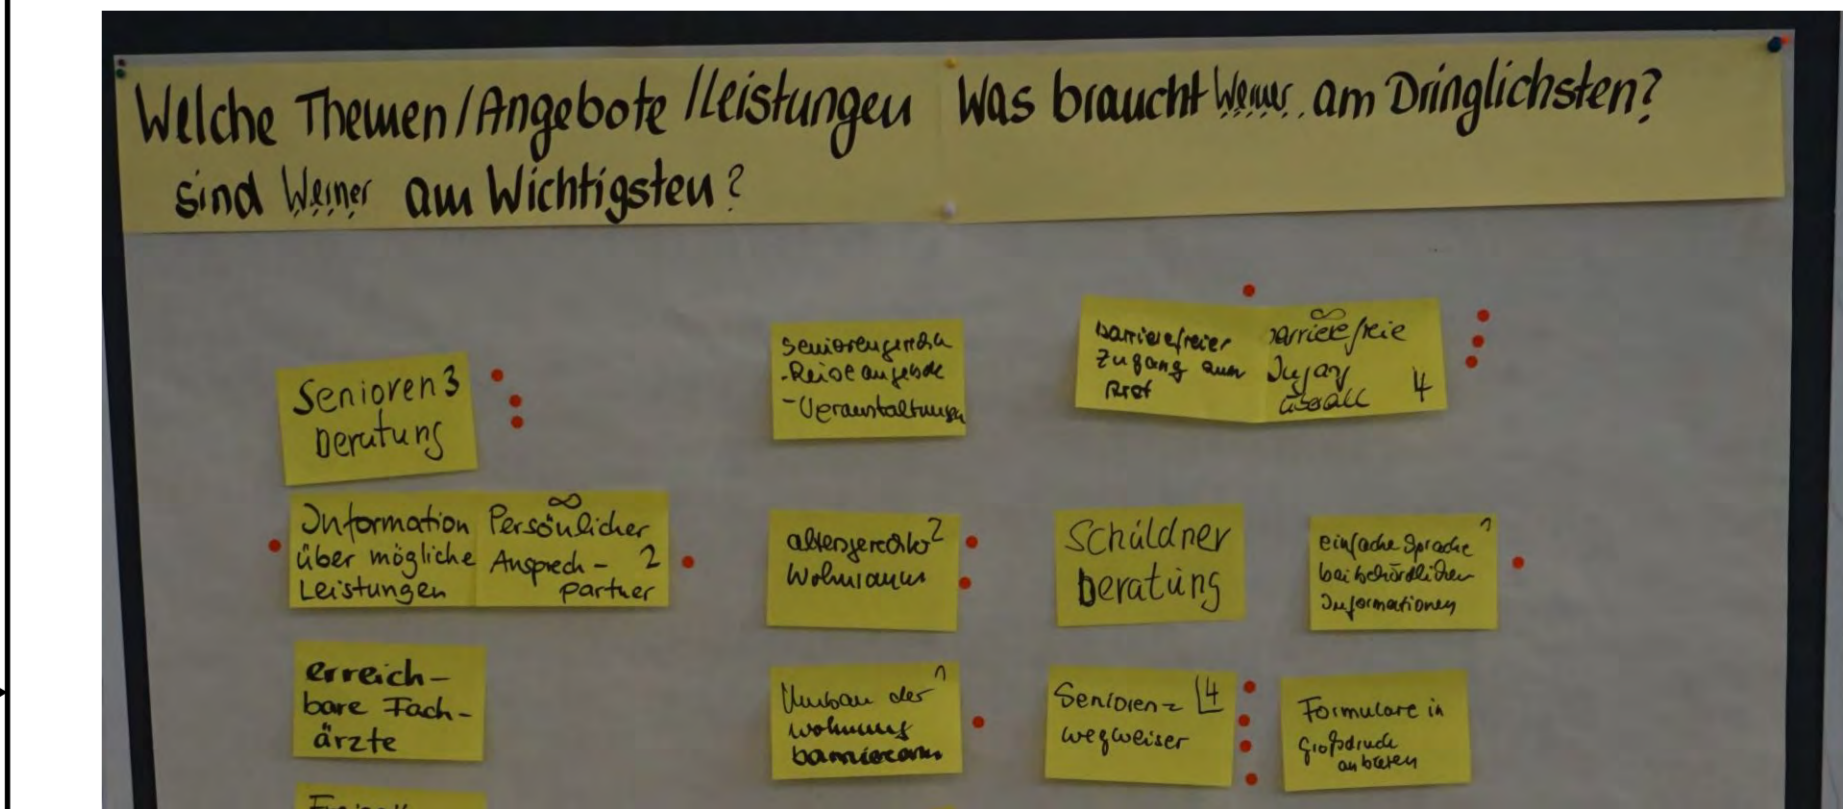 Welche Themen/Angebote/Leistungen
sind Werner am Wichtigsten?
Was braucht Werner am Dringlichsten?
Senioren 3
beratung
Information
über mögliche
Leistungen
∞
Persönlicher
Ansprech- 2
partner
erreich-
bare Fach-
ärzte
seniorengerechte
-Reiseangebote
-Veranstaltungen
altersgerechter 2
Wohnraum
Umbau der 1
Wohnung
barrierearm
barrierefreier
Zugang zum
∞
barrierefreie
Zugang
überall 4
Schuldner
beratung
einfache Sprache 1
bei behördlichen
Informationen
Senioren= 4
wegweiser
Formulare in
Großdruck
anbieten